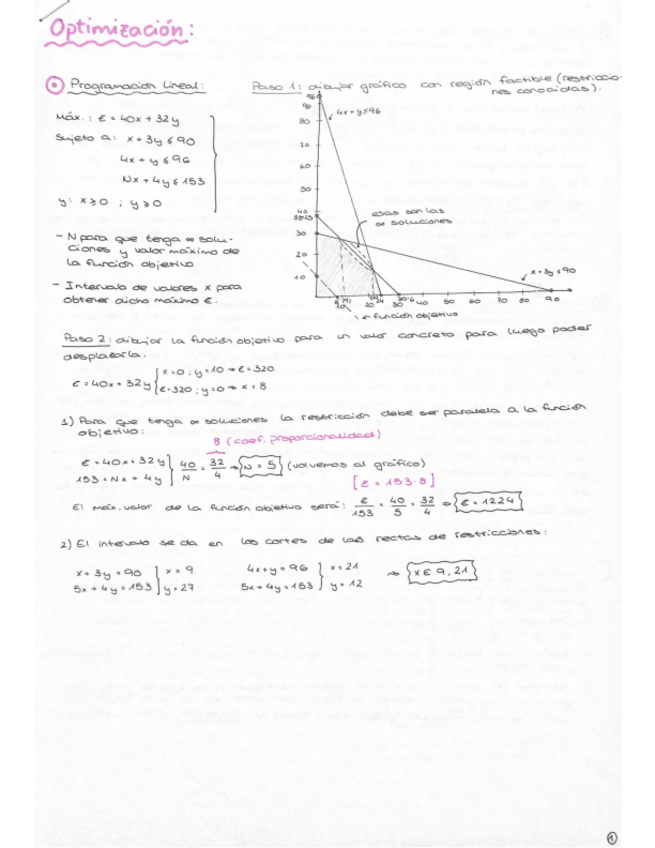 Optimización:
Programación Lineal:
Máx.: ε = 40x + 32y
Sujeto a: x + 3y ≤ 90
4x + y ≤ 96
Nx + 4y ≤ 153
y: x ≥ 0 ; y ≥ 0
- N para que tenga ∞ solu-
ciones y valor máximo de
la función objetivo
- Intervalo de valores x para
obtener dicho máximo ε.
Paso 1: dibujar gráfico con región factible (restriccio-
nes conocidas).
96
90
80
70
60
50
40
30
20
10
4x + y ≤ 96
esas son las
∞ soluciones
x + 3y ≤ 90
10 20 24 40 50 60 70 80 90
función objetivo
Paso 2: dibujar la función objetivo para un valor concreto para luego poder
desplazarla.
ε = 40x + 32y { x = 0 ; y = 10 → ε = 320
ε = 320 ; y = 0 → x = 8
1) Para que tenga ∞ soluciones la restricción debe ser paralela a la función
objetivo:
8 (coef. proporcionalidad)
ε = 40x + 32y } 40/N = 32/4 → N = 5 (volvemos al gráfico)
153 = Nx + 4y
[ε = 153·8]
El máx. valor de la función objetivo será: ε/153 = 40/5 = 32/4 → ε = 1224
2) El intervalo se da en los cortes de las rectas de restricciones:
x + 3y = 90 } x = 9 4x + y = 96 } x = 21
5x + 4y = 153 } y = 27 5x + 4y = 153 } y = 12 → x ∈ 9, 21
1